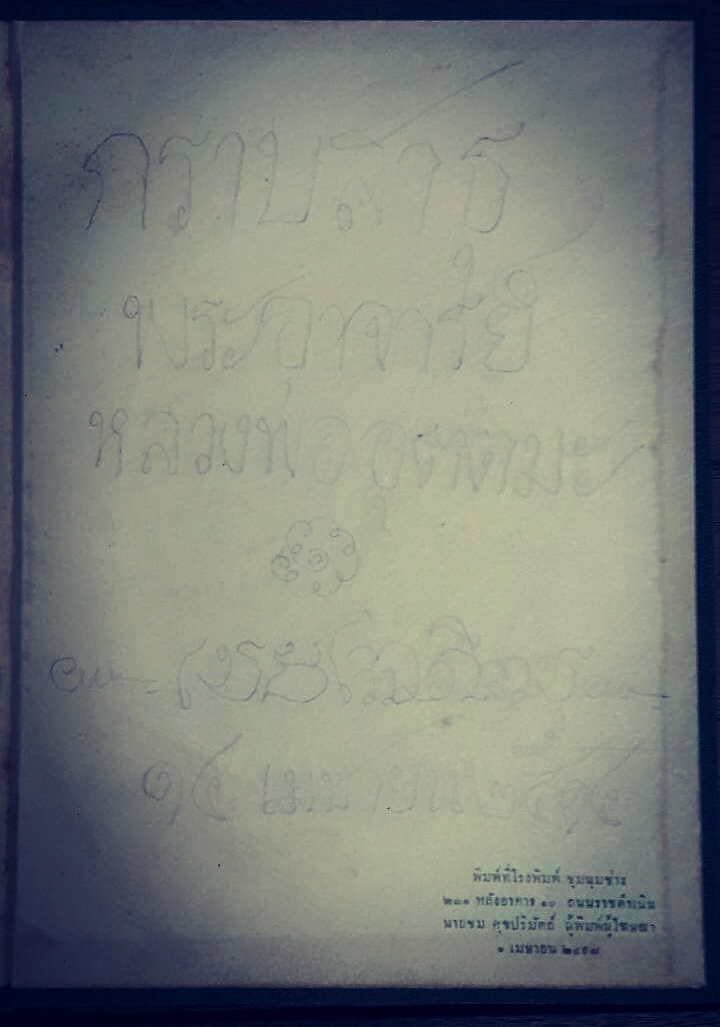 กราบสาธุ
พระอาจารย์
หลวงพ่ออุตตมะ
๑๔ เมษายน ๒๕๑๔
พิมพ์ที่โรงพิมพ์ ชุมนุมช่าง
๒๐๑ หลังอาคาร ๑๐ ถนนราชดำเนิน
นายชม ศุขปริมัตถ์ ผู้พิมพ์ผู้โฆษณา
๑ เมษายน ๒๔๙๘